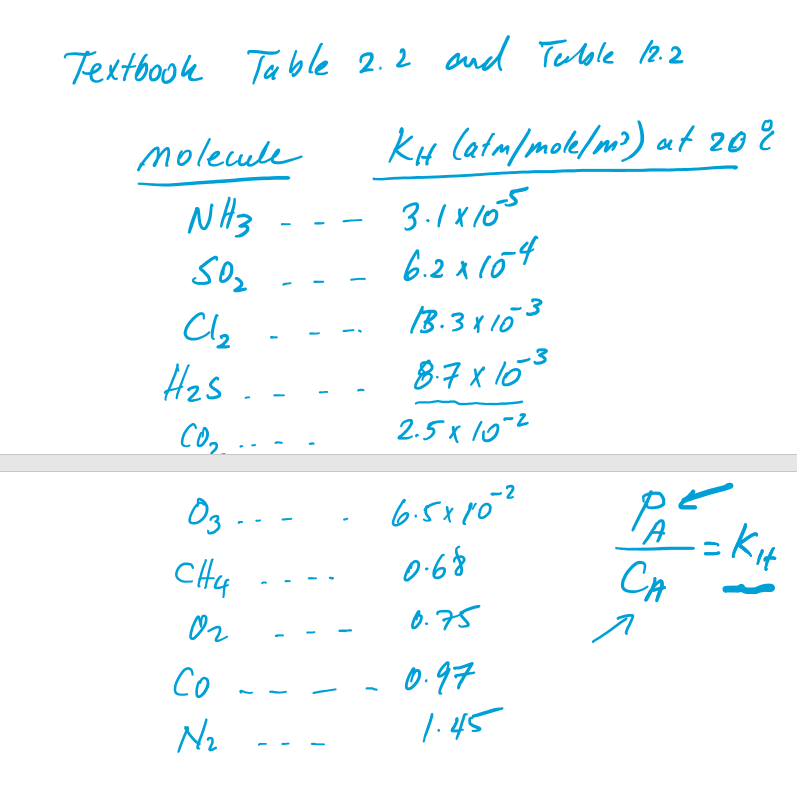 Textbook Table 2.2 and Table 12.2
Molecule KH (atm/mole/m³) at 20 °C
NH3 - - - 3.1 x 10^-5
SO2 - - - 6.2 x 10^-4
Cl2 - - - . 18.3 x 10^-3
H2S . - - - 8.7 x 10^-3
CO2 .. - - 2.5 x 10^-2
O3 - - - . 6.5 x 10^-2
CH4 - - - - 0.68
O2 - - - 0.75
CO - - - - 0.97
N2 - - - 1.45
PA / CA = KH